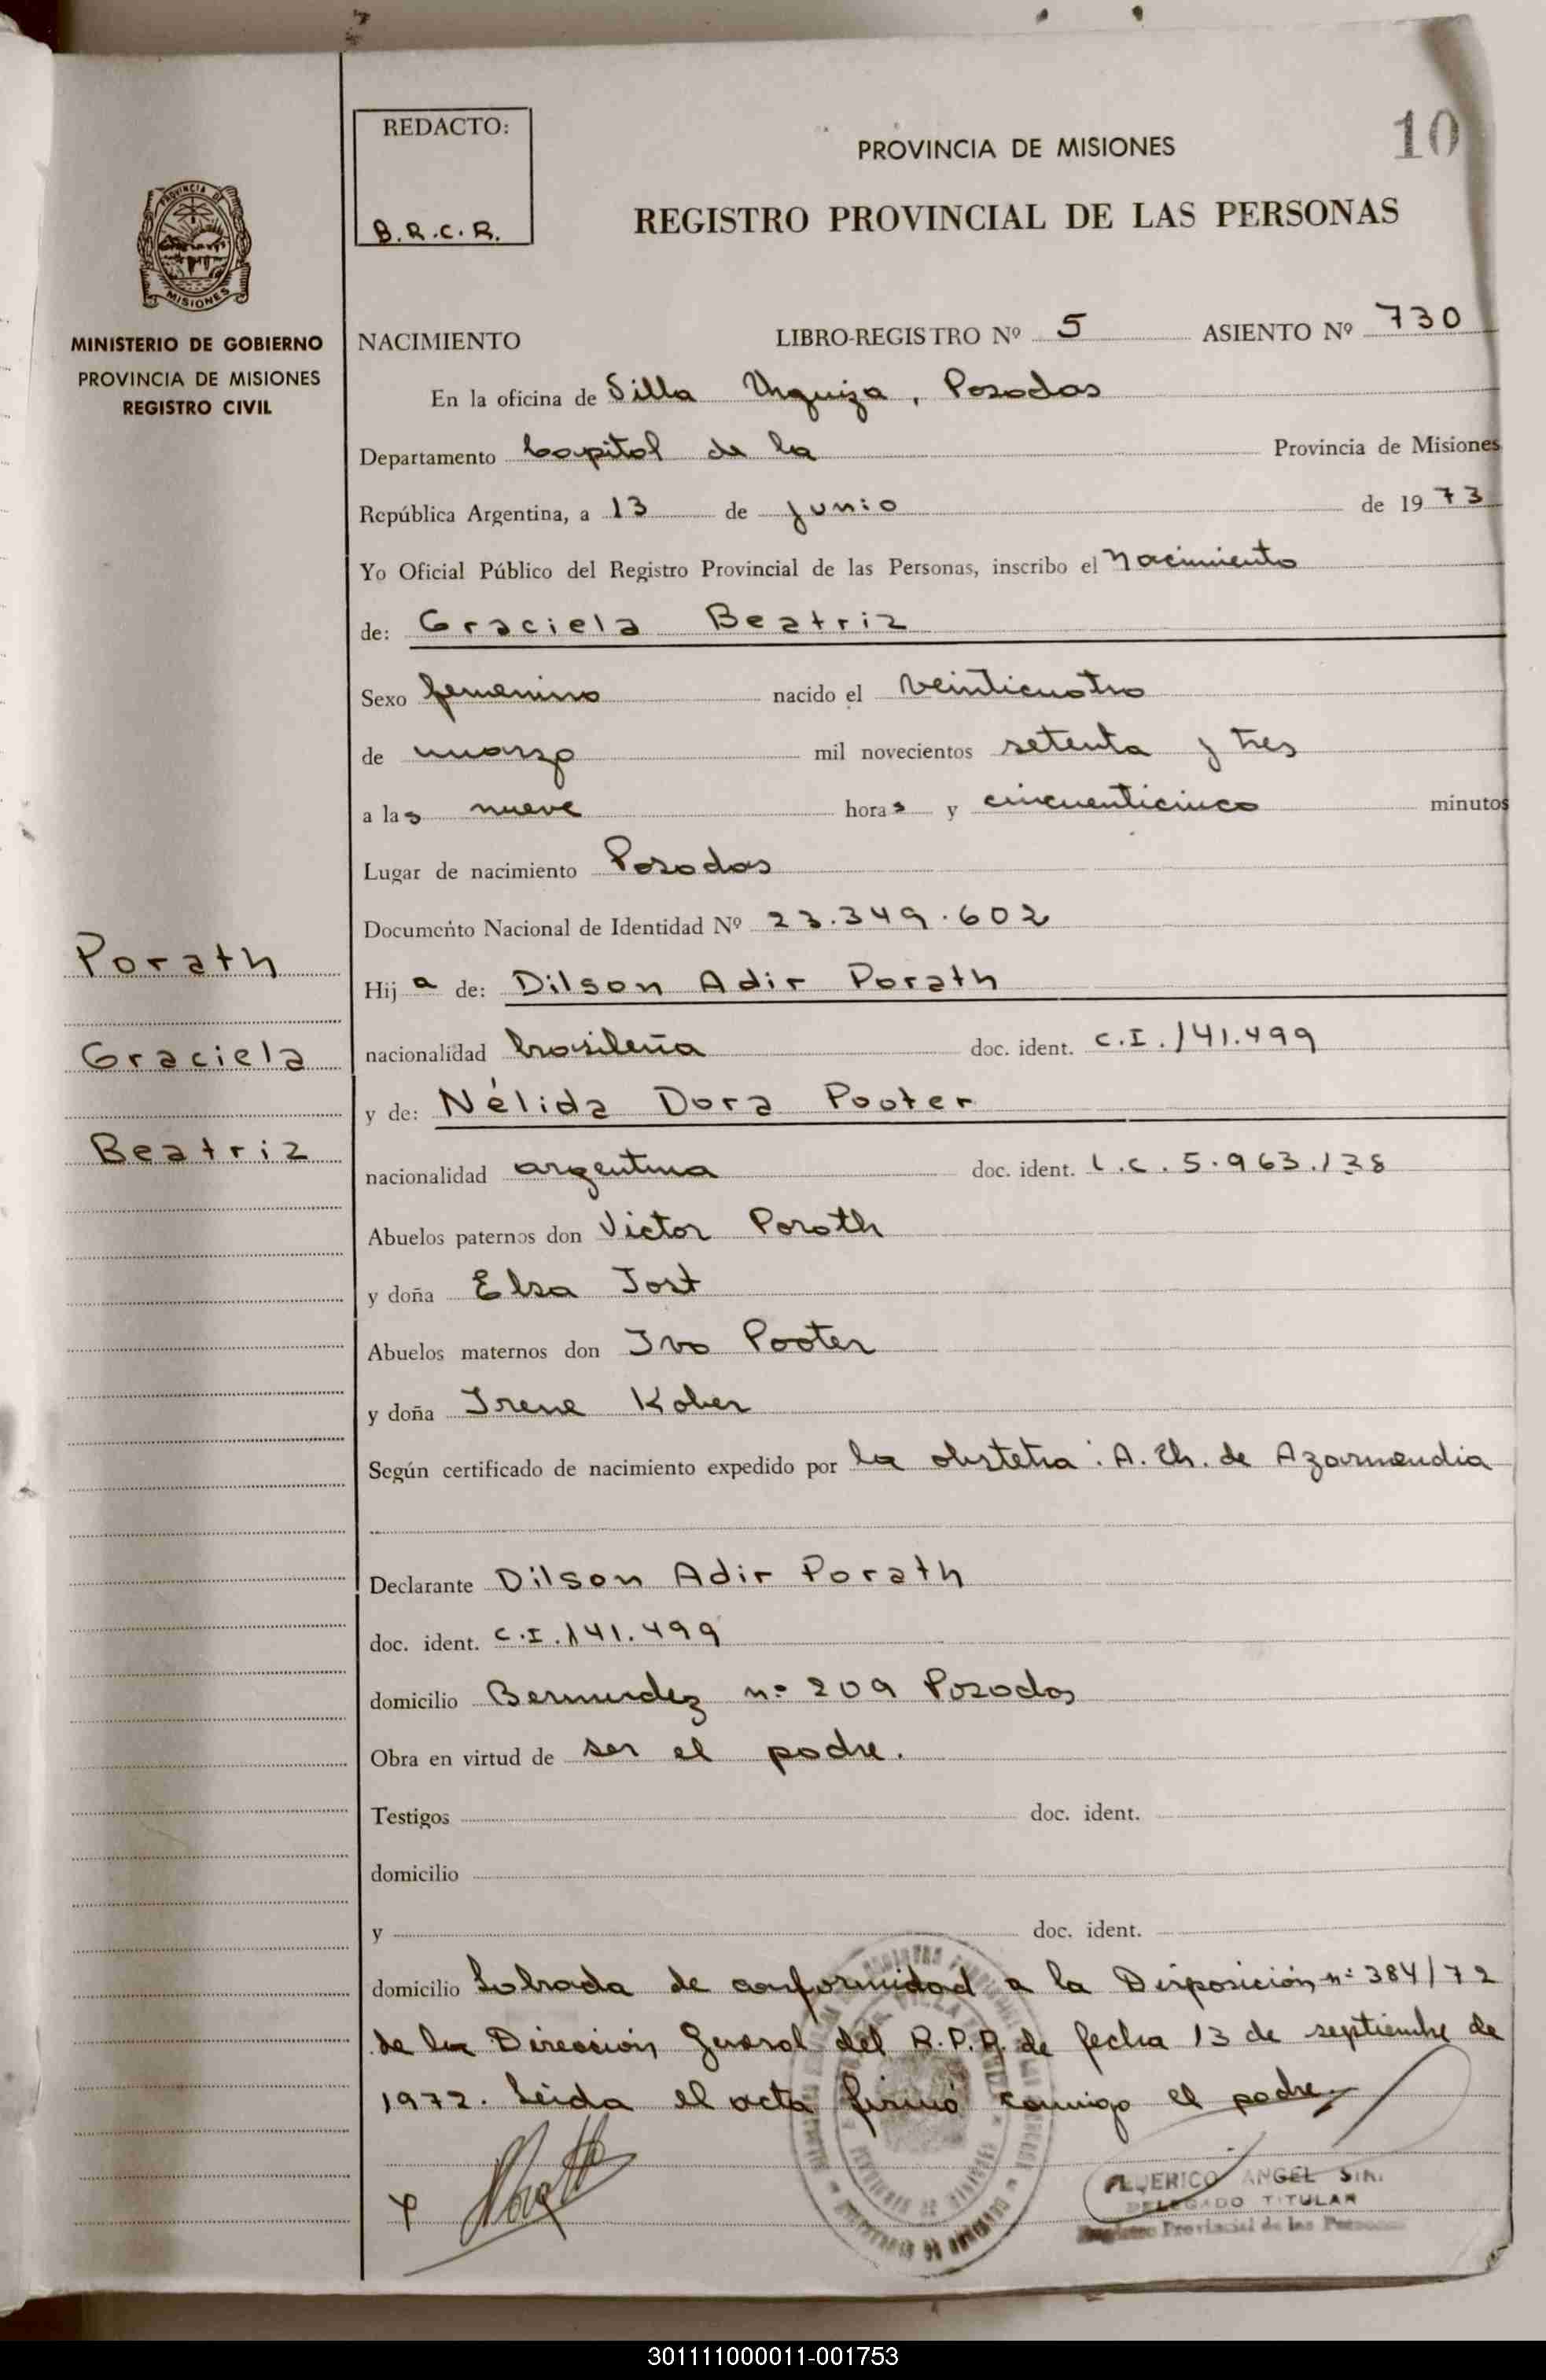 10
REDACTO:
B.R.C.R.
PROVINCIA DE MISIONES
REGISTRO PROVINCIAL DE LAS PERSONAS
PROVINCIA DE
MISIONES
MINISTERIO DE GOBIERNO
PROVINCIA DE MISIONES
REGISTRO CIVIL
NACIMIENTO LIBRO-REGISTRO Nº 5 ASIENTO Nº 730
En la oficina de Villa Urquiza, Posadas
Departamento Capital de la Provincia de Misiones
República Argentina, a 13 de junio de 1973
Yo Oficial Público del Registro Provincial de las Personas, inscribo el Nacimiento
de: Graciela Beatriz
Sexo femenino nacido el veinticuatro
de marzo mil novecientos setenta y tres
a las nueve horas y cincuenticinco minutos
Lugar de nacimiento Posadas
Documento Nacional de Identidad Nº 23.349.602
Porath
Graciela
Beatriz
Hija de: Dilson Adir Porath
nacionalidad brasileña doc. ident. C.I.141.499
y de: Nélida Dora Pooter
nacionalidad argentina doc. ident. L.C. 5.963.138
Abuelos paternos don Victor Porath
y doña Elsa Jost
Abuelos maternos don Ivo Pooter
y doña Irene Kober
Según certificado de nacimiento expedido por la obstetra: A. Ch. de Azarmendia
Declarante Dilson Adir Porath
doc. ident. C.I.141.499
domicilio Bermudez nº 209 Posadas
Obra en virtud de ser el padre.
Testigos doc. ident.
domicilio
y doc. ident.
domicilio Labrada de conformidad a la Disposición nº 384/72
de la Dirección General del R.P.P. de fecha 13 de septiembre de
1972. Leida el acta firmó conmigo el padre.
FEDERICO ANGEL
DELEGADO TITULAR
Registro Provincial de las Personas
301111000011-001753